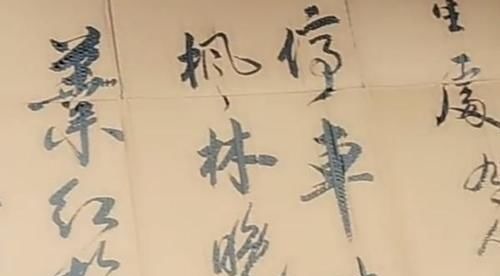 生處
停車
楓林晚
葉紅於